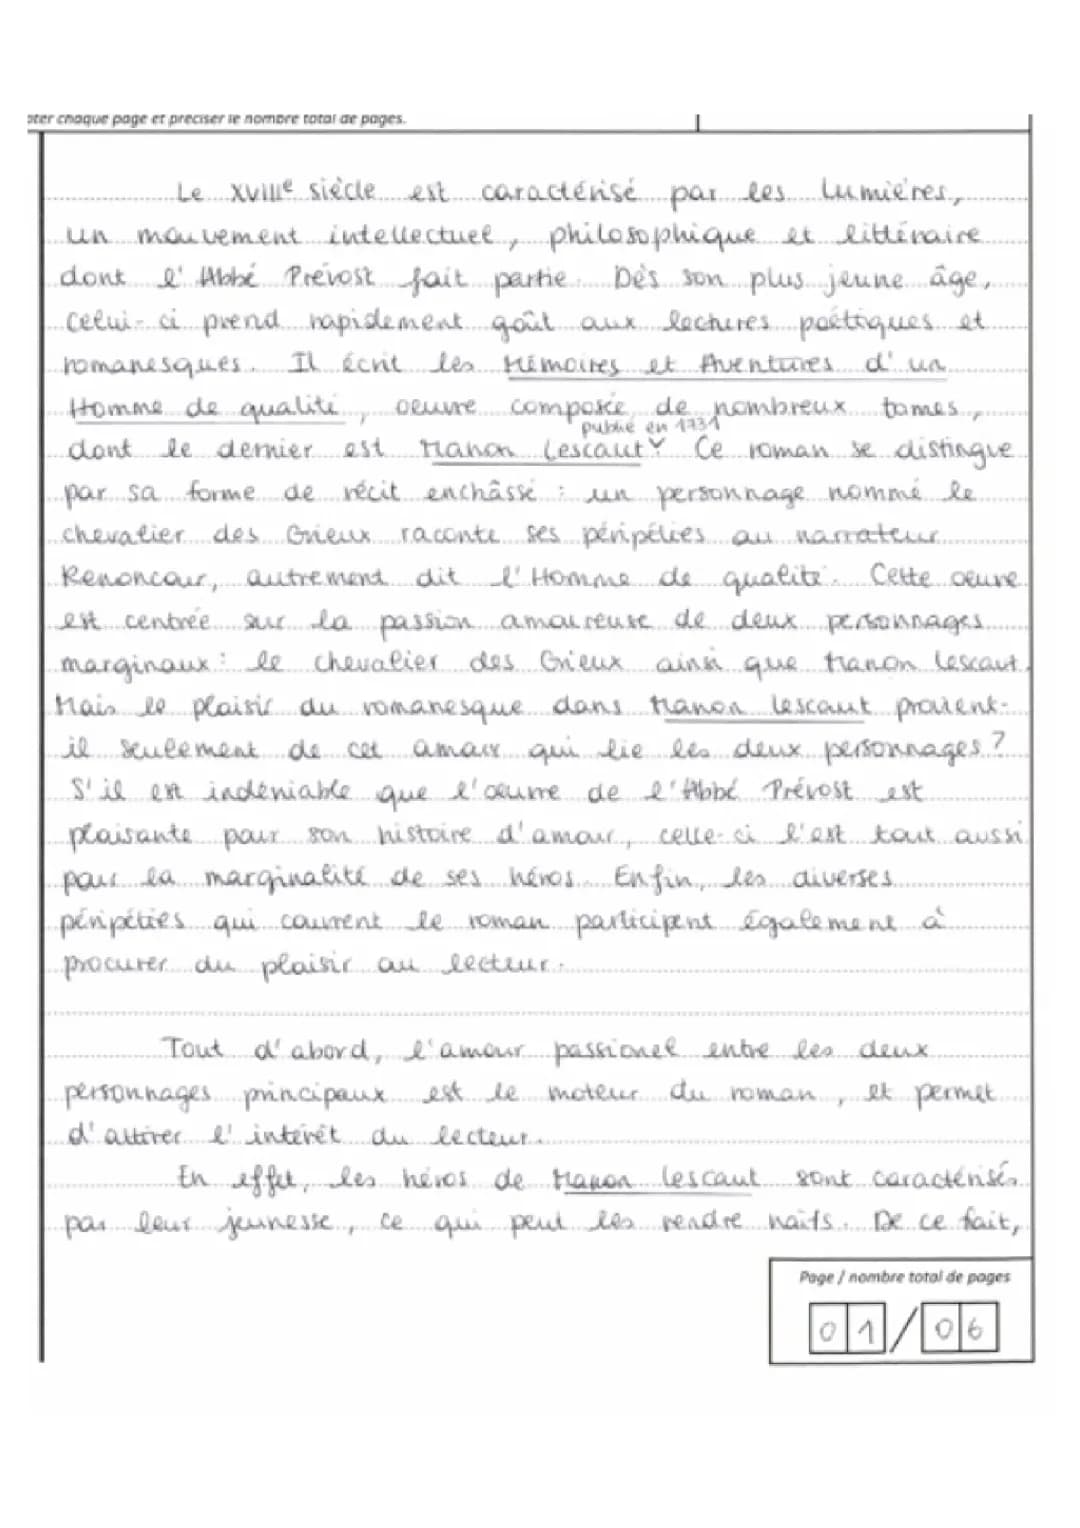 oter chaque page et préciser le nombre total de pages.
Le XVIIIe siècle est caractérisé par les Lumières,
un mouvement intellectuel, philosophique et littéraire
dont l'Abbé Prévost fait partie. Dès son plus jeune âge,
celui-ci prend rapidement goût aux lectures poétiques et
romanesques. Il écrit les Mémoires et Aventures d'un
Homme de qualité, oeuvre composée de nombreux tomes,
publié en 1731
dont le dernier est Manon Lescaut. Ce roman se distingue
par sa forme de récit enchâssé : un personnage nommé le
chevalier des Grieux raconte ses péripéties au narrateur
Renoncour, autrement dit l'Homme de qualité. Cette oeuvre
est centrée sur la passion amoureuse de deux personnages
marginaux : le chevalier des Grieux ainsi que Manon Lescaut.
Mais le plaisir du romanesque dans Manon Lescaut provient-
il seulement de cet amour qui lie les deux personnages ?
S'il est indéniable que l'oeuvre de l'Abbé Prévost est
plaisante pour son histoire d'amour, celle-ci l'est tout aussi
pour la marginalité de ses héros. Enfin, les diverses
péripéties qui couvrent le roman participent également à
procurer du plaisir au lecteur.
Tout d'abord, l'amour passionel entre les deux
personnages principaux est le moteur du roman, et permet
d'attirer l'intérêt du lecteur.
En effet, les héros de Manon Lescaut sont caractérisés
par leur jeunesse, ce qui peut les rendre naïfs. De ce fait,
Page / nombre total de pages
01/06